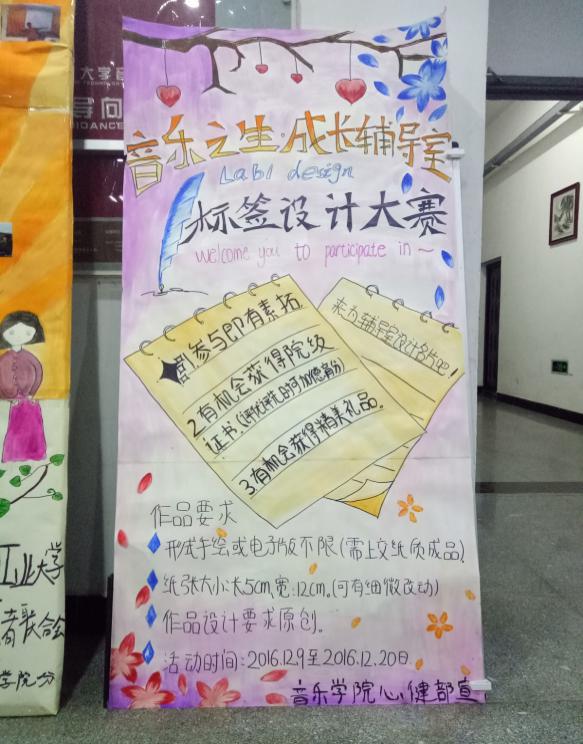 音乐之生·成长辅导室
Labl design
标签设计大赛
Welcome you to participate in ~
1.参与即有素拓
2.有机会获得院级
证书.(评优评先时可加德育分)
3.有机会获得精美礼品。
来为辅导室设计名片吧!
作品要求
形式手绘或电子版不限(需上交纸质成品)
纸张大小:长5cm,宽:12cm。(可有细微改动)
作品设计要求原创。
活动时间:2016.12.9至2016.12.20日
音乐学院心健部宣
大学
导向
IDANCE
工业大学
者联合会
学院分